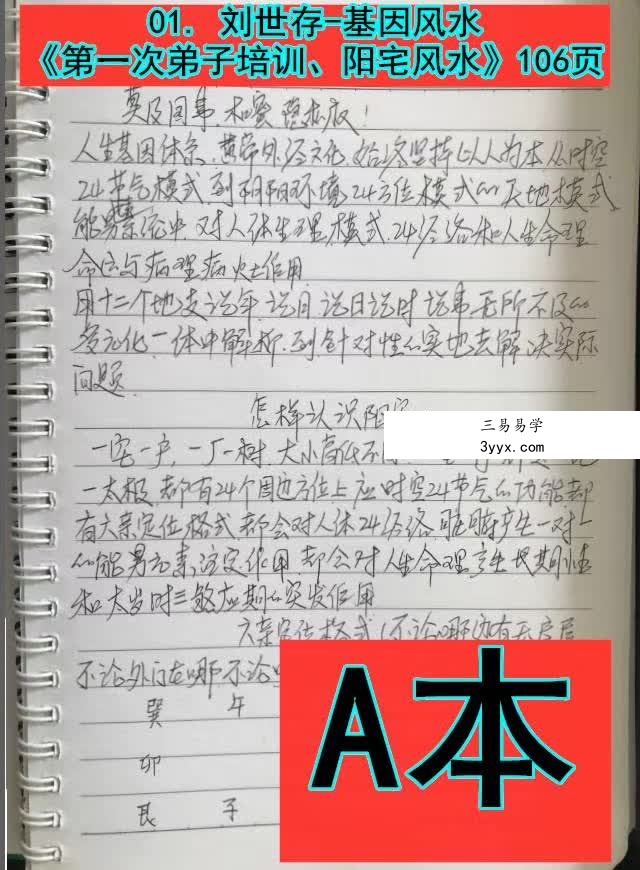 01. 刘世存-基因风水
《第一次弟子培训、阳宅风水》106页
人生基因体系,黄帝外经文化,始终坚持以人为本,从时空
24节气模式到阴阳环境24方位模式的天地模式
能量系统中,对人体生理模式,24经络和人生命理
命位与病理病灶作用
用十二个地支说年,说月,说日说时,说事无所不及的
多元化,一体中解析,到针对性的实地去解决实际
问题.
怎样认识阳宅
一宅一户,一厂一树,大小高低不
三易易学
3yyx.com
一太极,都有24个周边方位上应时空24节气的功能都
有六亲定位格式,都会对人体24经络,脏腑产生一对一
的能量元素注定作用,都会对人生命理产生长期性
和太岁时三数应期的突发作用
六亲定位格式(不论哪边有无房屋
不论外门在哪 不论
癸 午
卯
艮 子
A本